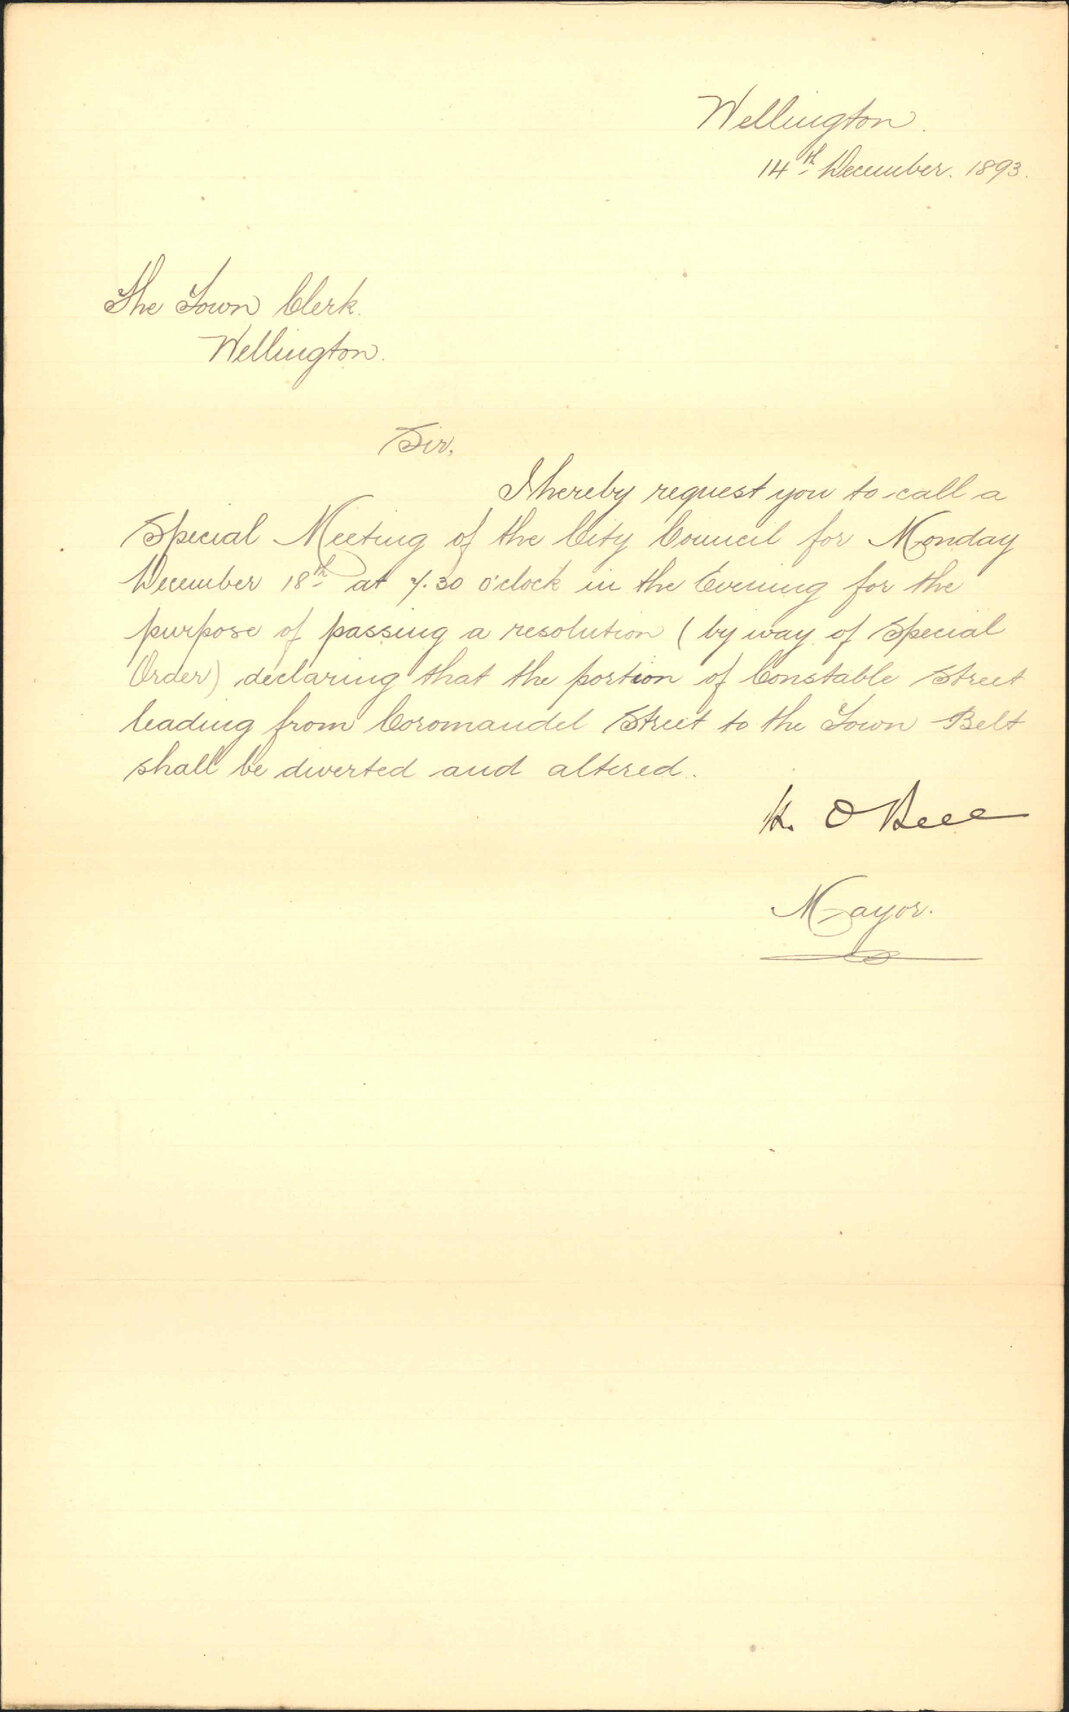 Wellington.
14th December. 1893.
The Town Clerk.
Wellington.
Sir,
I hereby request you to call a
Special Meeting of the City Council for Monday
December 18th at 7.30 o'clock in the Evening for the
purpose of passing a resolution (by way of Special
Order) declaring that the portion of Constable Street
leading from Coromandel Street to the Town Belt
shall be diverted and altered.
H. D Bell
Mayor.